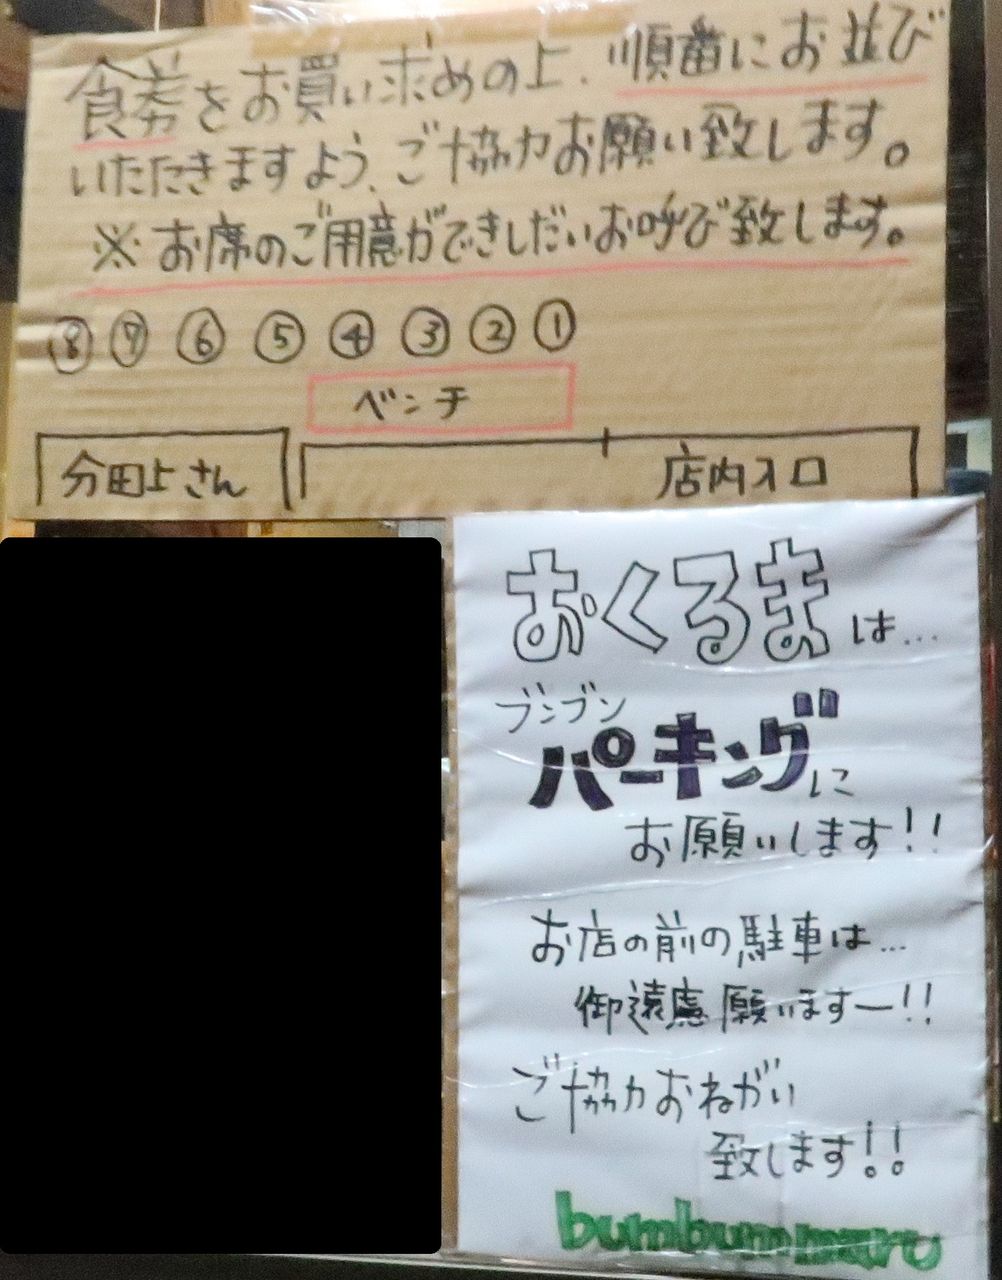 食券をお買い求めの上、順番にお並び
いただきますよう、ご協力お願い致します。
※お席のご用意ができしだいお呼び致します。
⑧ ⑦ ⑥ ⑤ ④ ③ ② ①
ベンチ
分田上さん 店内入口
おくるまは...
ブンブン
パーキングに
お願いします!!
お店の前の駐車は...
御遠慮願いますー!!
ご協力おねがい
致します!!
bumbunmaru